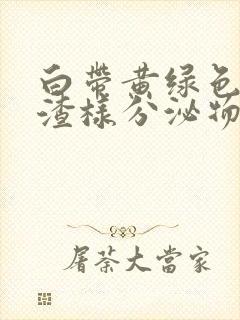 白带黄绿色
渣样分泌物
屠荼大當家